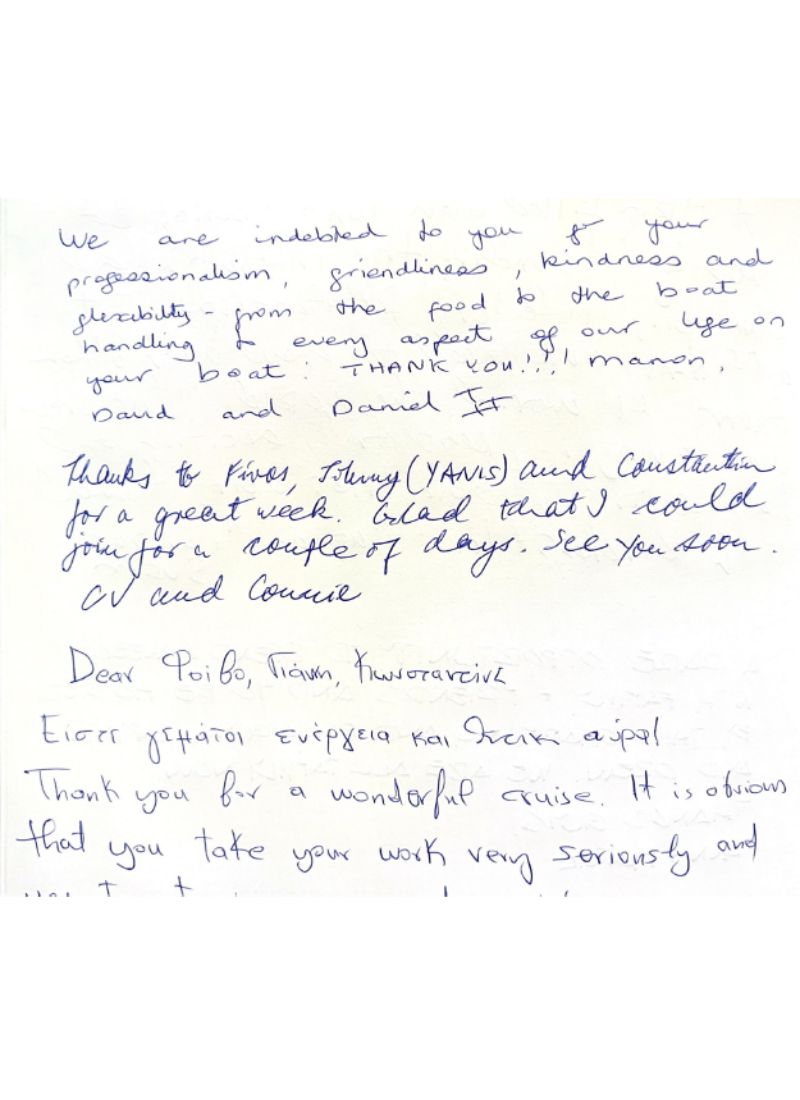 We are indebted to you for your
professionalism, friendliness, kindness and
flexibilty - from the food to the boat
handling & every aspect of our life on
your boat! THANK YOU!!! Manon,
David and Daniel II
Thanks to Fivos, Johnny (YANIS) and Constantin
for a great week. Glad that I could
join for a couple of days. See you soon.
CV and Connie
Dear Φοίβο, Γιάννη, Κωνσταντίνε
Είστε γεμάτοι ενέργεια και θετική αύρα!
Thank you for a wonderful cruise. It is obvious
that you take your work very seriously and